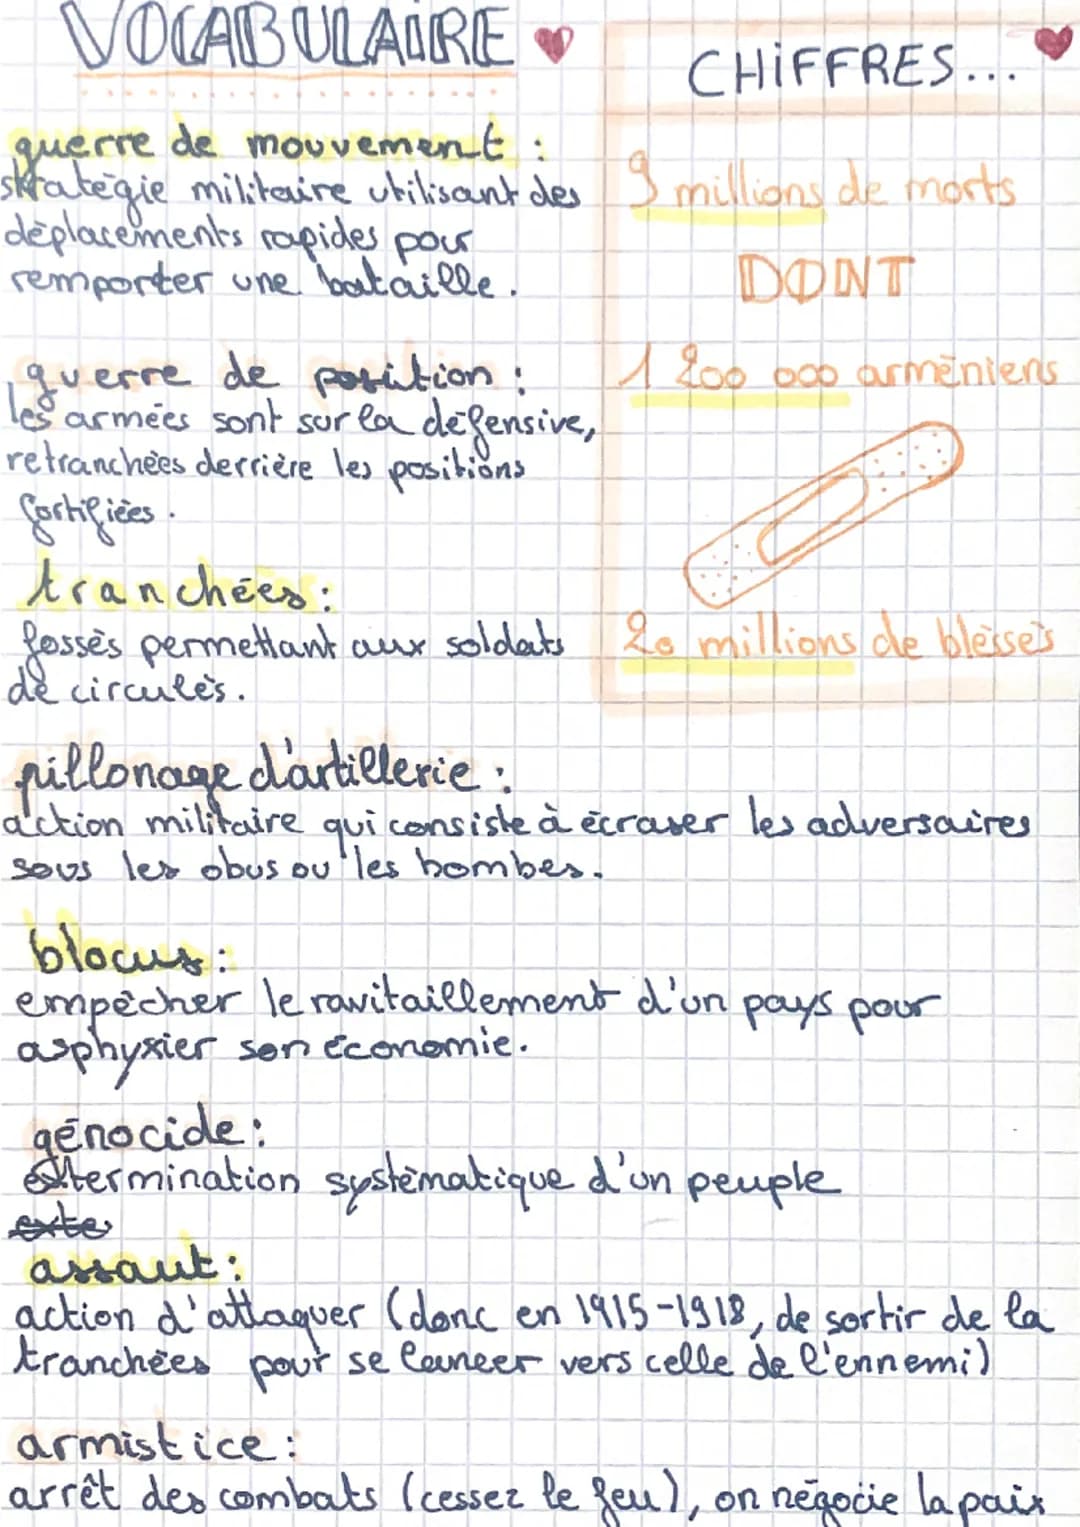 VOCABULAIRE
guerre de mouvement :
stratégie militaire utilisant des
déplacements rapides pour
remporter une bataille.
guerre de position :
les armées sont sur la défensive,
retranchées derrière les positions
fortifiées.
tranchées :
fossés permettant aux soldats
de circulés.
pillonage d'artillerie :
action militaire qui consiste à écraser les adversaires
sous les obus ou les bombes.
blocus :
empêcher le ravitaillement d'un pays pour
asphyxier son économie.
génocide :
extermination systématique d'un peuple
exte
assaut :
action d'attaquer (donc en 1915-1918, de sortir de la
tranchées pour se lancer vers celle de l'ennemi)
armistice :
arrêt des combats (cessez le feu), on négocie la paix
CHIFFRES...
9 millions de morts
DONT
1 200 000 arméniens
20 millions de blessés